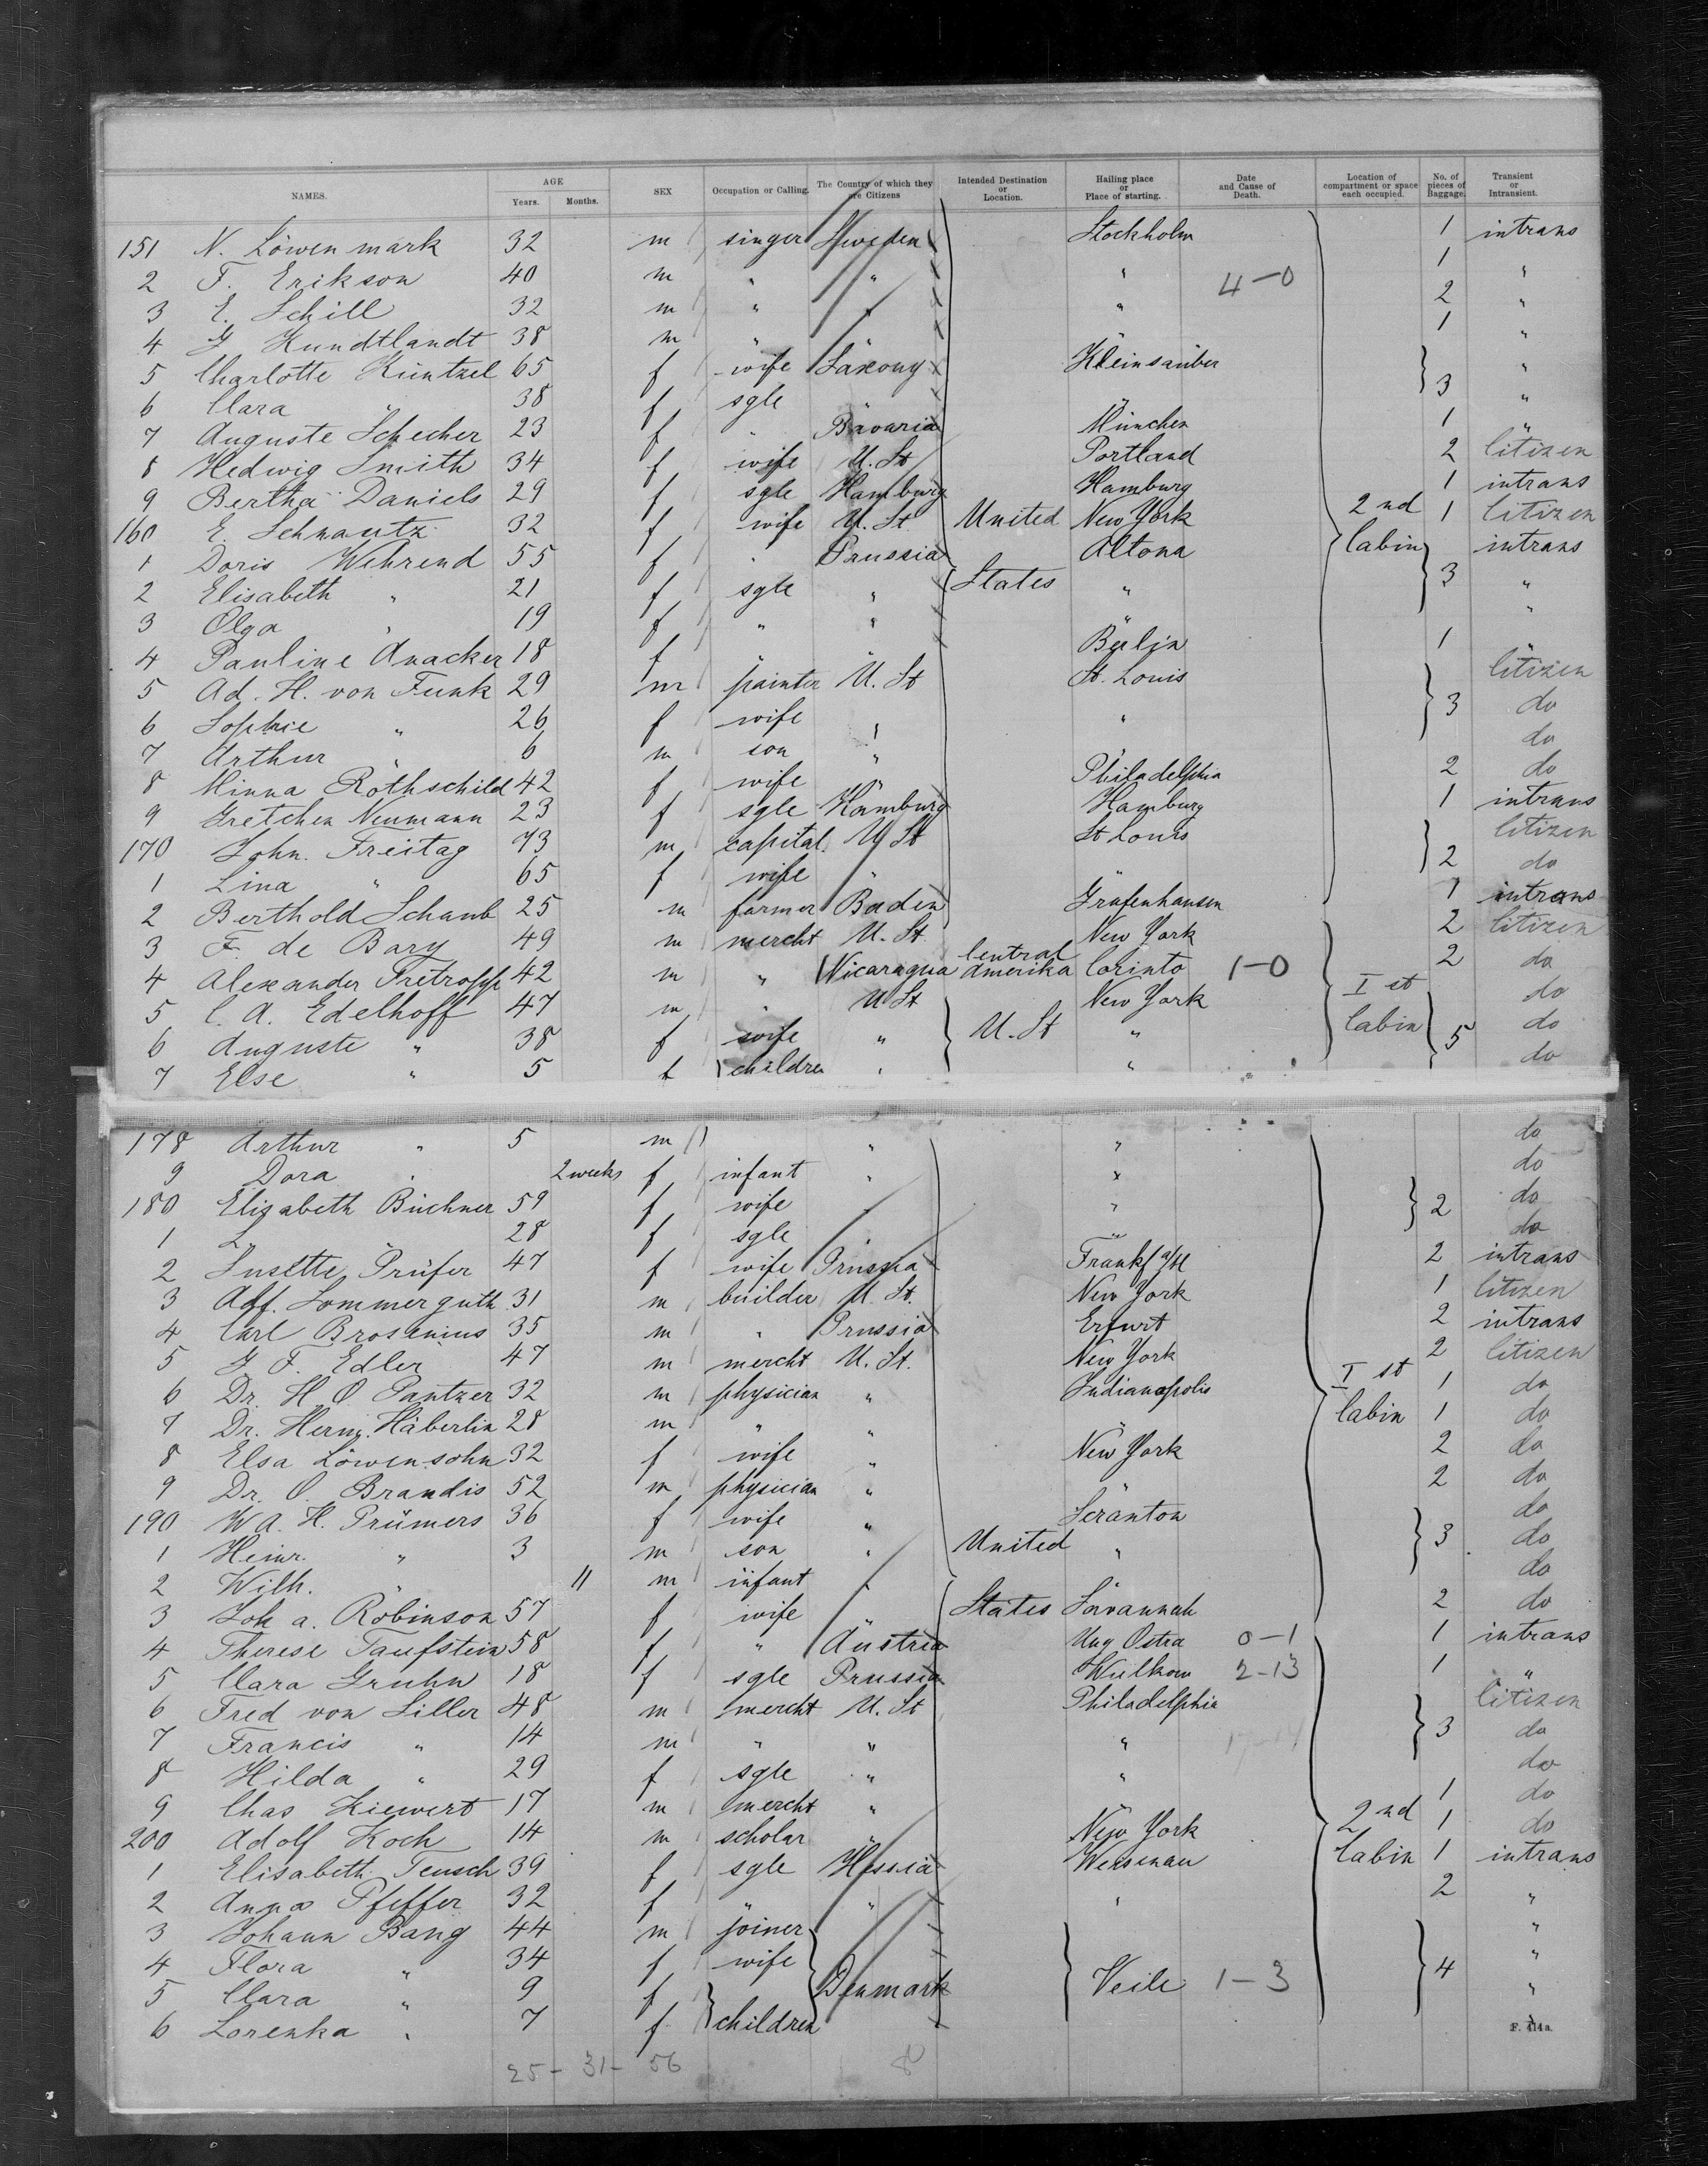 NAMES. AGE Years. Months. SEX Occupation or Calling. The Country of which they are Citizens Intended Destination or Location. Hailing place or Place of starting. Date and Cause of Death. Location of compartment or space each occupied. No. of pieces of Baggage. Transient or Intransient.
151 N. Löwenmark 32 m singer Sweden Stockholm 1 intrans
2 F. Erikson 40 m " " " 4-0 1 "
3 E. Schill 32 m " " " 2 "
4 G Hundtlandt 38 m " 1 "
5 Charlotte Küntzel 65 f wife Saxony 3 "
6 Clara " 38 f sgle "
7 Auguste Schecher 23 f " Bavaria München 1 "
8 Hedwig Smith 34 f wife U. St Portland 2 Citizen
9 Bertha Daniels 29 f sgle Hamburg Hamburg 1 intrans
160 E. Schnautz 32 f wife U. St United New York 2nd 1 Citizen
1 Doris Wehrend 55 f " Prussia Altona Cabin intrans
2 Elisabeth " 21 f sgle " States " 3 "
3 Olga " 19 f " " "
4 Pauline Anacker 18 f " " Berlin 1 "
5 Ad. H. von Funk 29 m painter U. St St. Louis Citizen
6 Sophie " 26 f wife " " 3 do
7 Arthur " 6 m son " do
8 Minna Rothschild 42 f wife " Philadelphia 2 do
9 Gretchen Neumann 23 f sgle Hamburg Hamburg 1 intrans
170 John. Freitag 73 m capital. U St St Louis Citizen
1 Lina " 65 f wife " 2 do
2 Berthold Schaub 25 m farmer Baden Gräfenhausen 1 intrans
3 F. de Bary 49 m mercht U. St New York 2 Citizen
4 Alexander 42 m " Nicaragua Central Amerika Corinto 1-0 2 do
5 C. A. Edelhoff 47 m " U St New York I st do
6 Auguste " 38 f wife " U. St " Cabin 5 do
7 Else " 5 f children " " do
178 Arthur " 5 m " " do
9 Dora " 2 weeks f infant " " do
180 Elisabeth Büchner 59 f wife " " 2 do
1 L " 28 f sgle " " do
2 Susette Prüfer 47 f wife Prussia Frankf a/M 2 intrans
3 Alf. Sommerguth 31 m builder U. St. New York 1 Citizen
4 Carl Brosinius 35 m " Prussia Erfurt 2 intrans
5 G F. Edler 47 m mercht U. St. New York 2 Citizen
6 Dr. H O Pantzer 32 m physician " Indianapolis I st 1 do
7 Dr. Herm. Häberlin 28 m " " Cabin 1 do
8 Elsa Löwensohn 32 f wife " New York 2 do
9 Dr. O. Brandis 52 m physician " " 2 do
190 W A. H. Prümers 36 f wife " Scranton do
1 Heinr. " 3 m son " United " 3 do
2 Wilh. " 11 m infant " do
3 Joh a. Robinson 57 f wife " States Savannah 2 do
4 Therese Taufstein 58 f " Austria Ung Ostra 0-1 1 intrans
5 Clara Gruhn 18 f sgle Prussia Wulkow 2-13 1 "
6 Fred von Siller 48 m mercht U. St Philadelphia Citizen
7 Francis " 14 m " " " 3 do
8 Hilda " 29 f sgle " " do
9 Chas Kiewert 17 m mercht " 1 do
200 Adolf Koch 14 m scholar " New York 2nd 1 do
1 Elisabeth Teusch 39 f sgle Hessia Weisenau Cabin 1 intrans
2 Anna Pfeffer 32 f " " " 2 "
3 Johann Bang 44 m joiner "
4 Flora " 34 f wife 4 "
5 Clara " 9 f Denmark Veile 1-3 "
6 Lorenka " 7 f children
F. 414a.
25 - 31 - 56